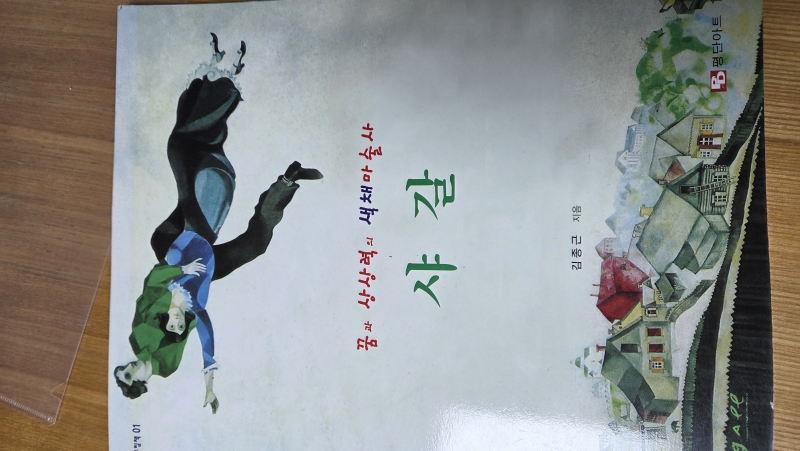 꿈과 상상력의 색채마술사
샤갈
김종근 지음
평단아트
gall